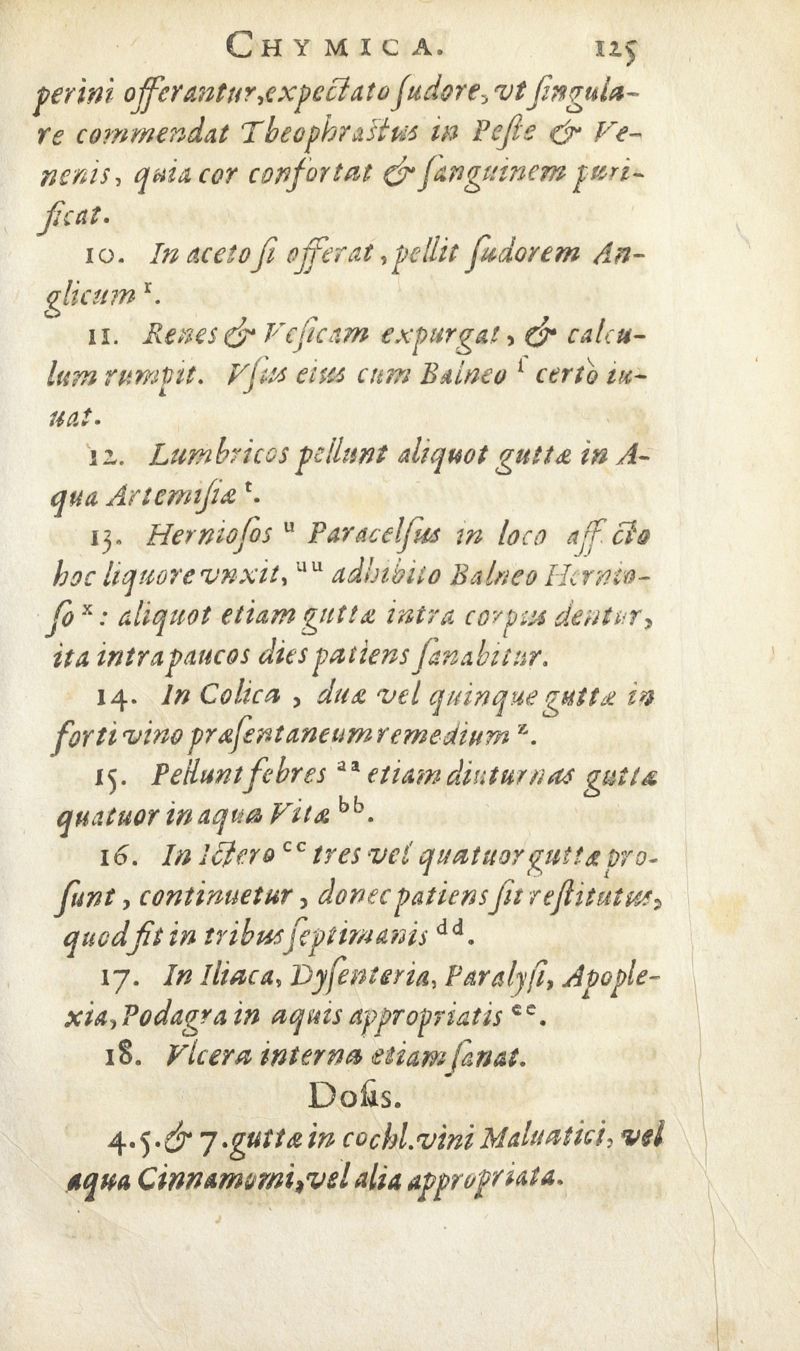 CHYMICA. 125
perini offerantur, expectato ſudore, vt ſingula-
re commendat Theophraſtus in Peſte & Ve-
nenis, quia cor confortat & ſanguinem puri-
ficat.
10. In aceto ſi offerat, pellit ſudorem An-
glicum r.
11. Renes & Veſicam expurgat, & calcu-
lum rumpit. Vſus eius cum Balneo ſ certò iu-
uat.
12. Lumbricos pellunt aliquot guttæ in A-
qua Artemiſiæ t.
13. Hernioſos u Paracelſus in loco aff cto
hoc liquore vnxit, uu adhibito Balneo Hernio-
ſo x: aliquot etiam guttæ intra corpus dentur,
ita intra paucos dies patiens ſanabitur.
14. In Colica, duæ vel quinque guttæ in
forti vino præſentaneum remedium z.
15. Pellunt febres aa etiam diuturnas guttæ
quatuor in aqua Vitæ bb.
16. In Ictero cc tres vel quatuor guttæ pro-
ſunt, continuetur, donec patiens ſit reſtitutus,
quod fit in tribus ſeptimanis dd.
17. In Iliaca, Dyſenteria, Paralyſi, Apople-
xia, Podagra in aquis appropriatis ee.
18. Vlcera interna etiam ſanat.
Doſis.
4. 5. & 7. guttæ in cochl. vini Maluatici, vel
aqua Cinnamomi, vel alia appropriata.